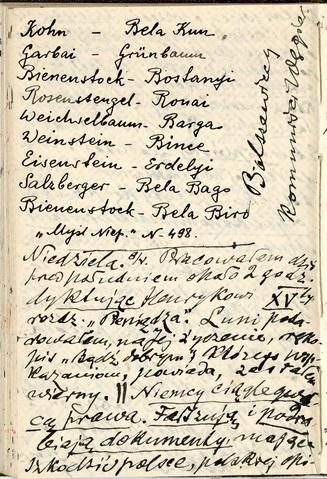 Kohn - Bela Kun
Garbai - Grünbaum
Bienenstock - Bostanyi
Rosenstengel - Ronai
Weichselbaum - Barga
Weinstein - Bince
Eisenstein - Erdelyi
Salzberger - Bela Bago
Bienenstock - Bela Biro
„Myśl Niep." N. 498.
Bolszewicy
Komuniści Węgier
Niedziela. Pracowałem dziś
przed południem około 2 godz.
dyktując Henrykowi XV-ty
rozdz. „Pieniądza". Luni poda-
rowałem, na jej życzenie,
„Bądź dobrym"
powiada, został
wierny. || Niemcy ciągle
prawa. Fałszują i podra-
biają dokumenty, mające
szkodzić Polsce, polskiej opi-